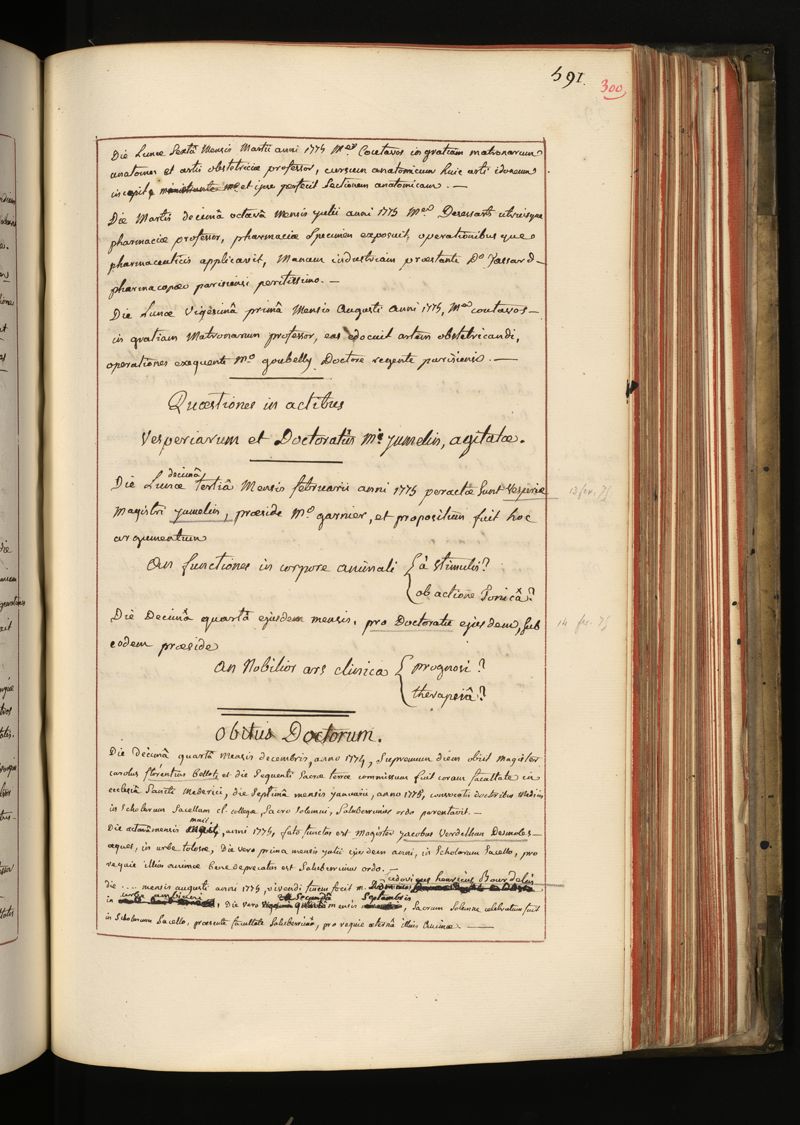 591.
300
Die Lunæ Sextâ Mensis Martii anni 1775 Mer Coutavos in gratiam matronarum
anatomes et artis obstetriciæ professor, cursum anatomicum huic arti idoneum
incepit, et ipse perfecit Sectionem anatomicam. —
Die Martis decimâ octavâ Mensis Julii anni 1775 Mer Desessartz utriusque
pharmaciæ professor, pharmaciæ Specimen exposuit, operationibus que
pharmaceuticis applicavit, Manum industriam præstante Do
pharmacopæo parisiensi peritissimo. —
Die Lunæ Vigesimâ primâ Mensis Augusti anni 1775, Mer coutavos —
in gratiam Matronarum professor, eas edocuit artem obstetricandi,
operationes exequente Mo goubelly Doctore regente parisiensi. —
Quæstiones in actibus
Vesperiarum et Doctoratûs Mri jumelin, agitatæ.
decimâ
Die Lunæ Tertiâ Mensis februarii anni 1775 peractæ Sunt Vesperiæ
13 fev. 75
Magistri jumelin, præside Mo garnier, et propositum fuit hoc
argumentum
An functiones in corpore animali { à Stimulis?
ob actione Tonicâ?
Die Decimâ quartâ ejusdem mensis, pro Doctoratu ejusdem, Sub
14 fev. 75
eodem præside
An Nobilior ars clinica { prognosi?
therapeiâ?
Obitus Doctorum.
Die decimâ quartâ Mensis decembris, anno 1774, Supremum diem obiit Magister
carolus florentius Bellot, et die Sequenti Sacræ terræ commissus fuit coram facultate in
ecclesiâ Sancti Mederici, die Septimâ mensis januarii, anno 1775, convocatis doctoribus Medicis
in Scholarum Sacellum cl. collegæ, Sacro Solemni, Saluberrimus ordo parentavit. —
maii
Die octavâ mensis, anni 1775, fato functus est Magister jacobus Verdelhan Desmoles —
æques, in urbe tolosæ, Die vero prima mensis julii ejusdem anni, in Scholarum Sacello, pro
requie illius animæ bene deprecatus est Saluberrimus ordo. —
ludovicus henricus Bourdelin
die .... mensis augusti anni 1775, vivendi finem fecit m.
Secundâ Septembris
in, die vero mensis, Sacrum Solemne celebratum fuit
in Scholarum Sacello, præsente facultate Saluberrimâ, pro requie æternâ illius Animæ. —